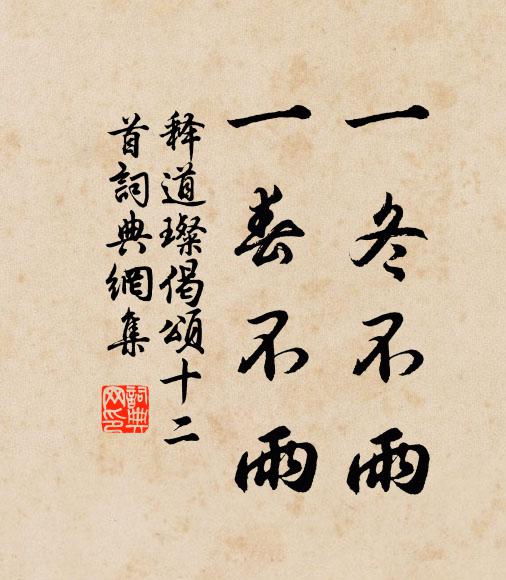 一冬不雨
一春不雨
释道璨偈頌十二
首詞典網集
詞典
网印